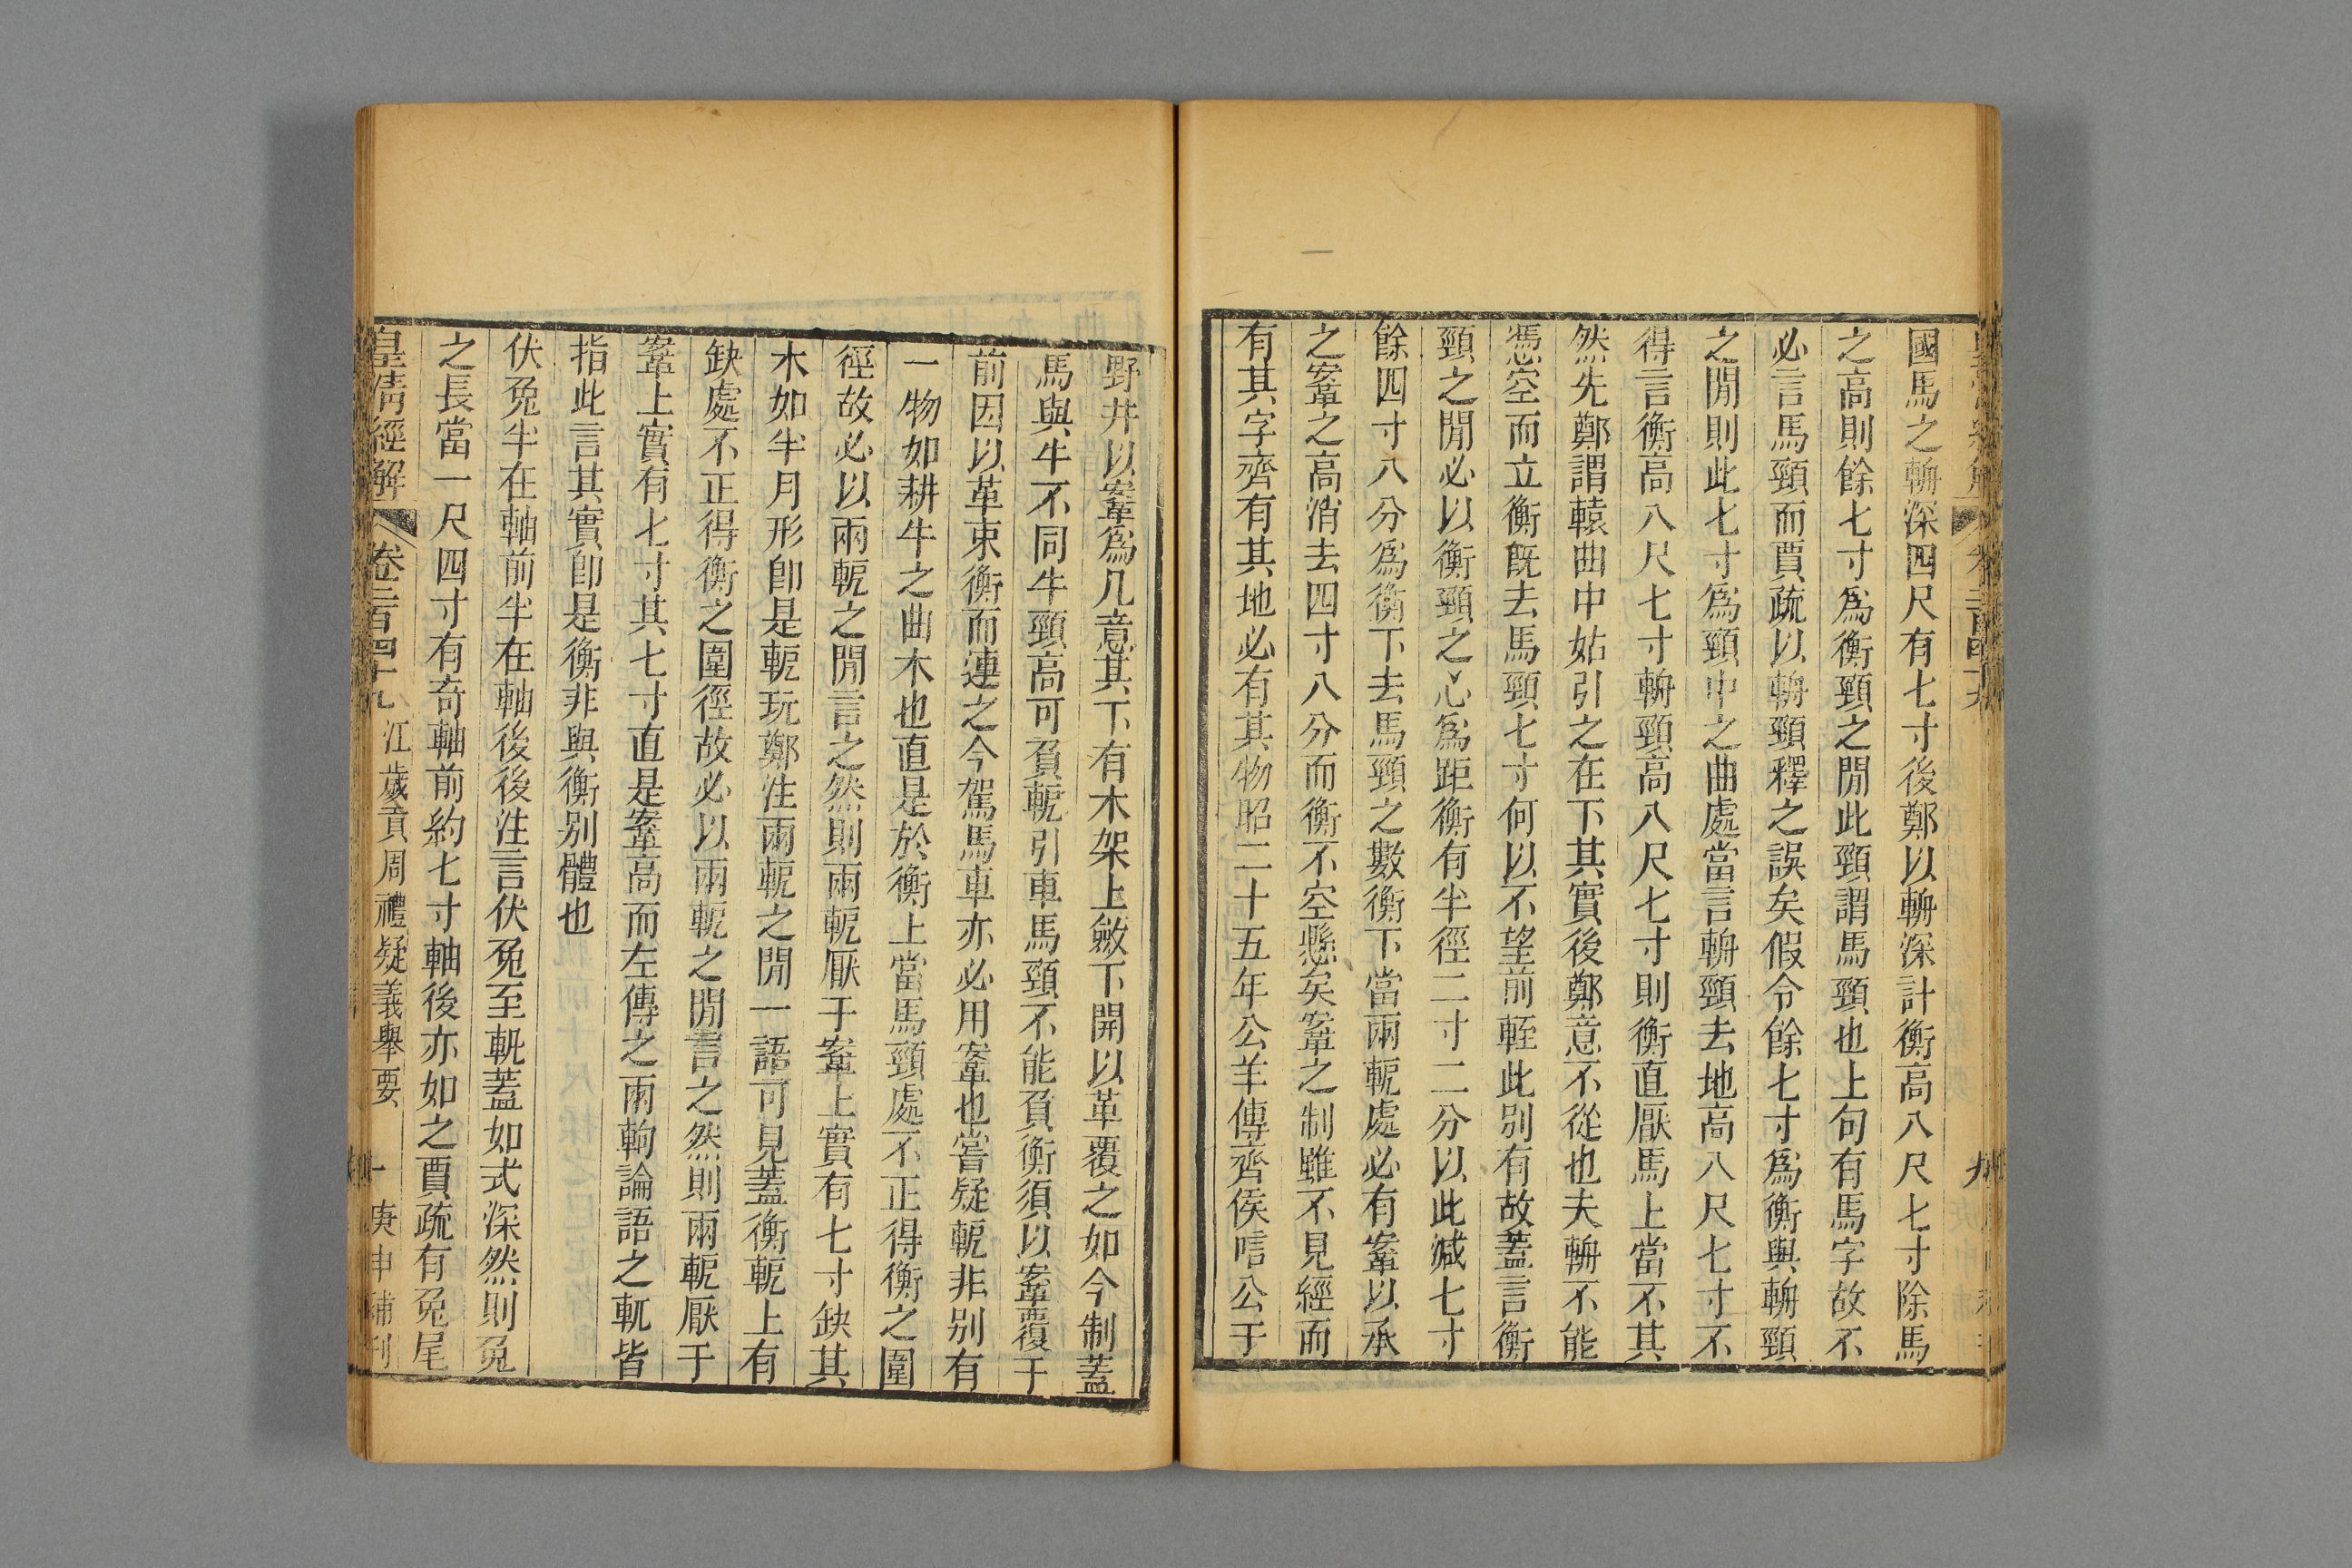 國馬之輈深四尺有七寸後鄭以輈深計衡高八尺七寸除馬
之高則餘七寸爲衡頸之閒此頸謂馬頸也上句有馬字故不
必言馬頸而賈疏以輈頸釋之誤矣假令餘七寸爲衡與輈頸
之閒則此七寸爲頸中之曲處當言輈頸去地高八尺七寸不
得言衡高八尺七寸輈頸高八尺七寸則衡直厭馬上當不其
然先鄭謂轅曲中姑引之在下其實後鄭意不從也夫輈不能
憑空而立衡旣去馬頸七寸何以不望前輊此別有故蓋言衡
頸之閒必以衡頸之心爲距衡有半徑二寸二分以此減七寸
餘四寸八分爲衡下去馬頸之數衡下當兩軛處必有鞌以承
之鞌之高消去四寸八分而衡不空懸矣鞌之制雖不見經而
有其字齊有其地必有其物昭二十五年公羊傳齊侯唁公于
九
野井以鞌爲几意其下有木架上斂下開以革覆之如今制蓋
馬與牛不同牛頸高可負軛引車馬頸不能負衡須以鞌覆于
前因以革束衡而連之今駕馬車亦必用鞌也嘗疑軛非別有
一物如耕牛之曲木也直是於衡上當馬頸處不正得衡之圍
徑故必以兩軛之閒言之然則兩軛厭于鞌上實有七寸缺其
木如半月形卽是軛玩鄭注兩軛之閒一語可見蓋衡軛上有
缺處不正得衡之圍徑故必以兩軛之閒言之然則兩軛厭于
鞌上實有七寸其七寸直是鞌高而左傳之兩軥論語之軏皆
指此言其實卽是衡非與衡別體也
伏兔半在軸前半在軸後後注言伏兔至軓蓋如式深然則兔
之長當一尺四寸有奇軸前約七寸軸後亦如之賈疏有兔尾
皇淸經解 卷二百四十九 江歲貢周禮疑義舉要 十 庚申補刊